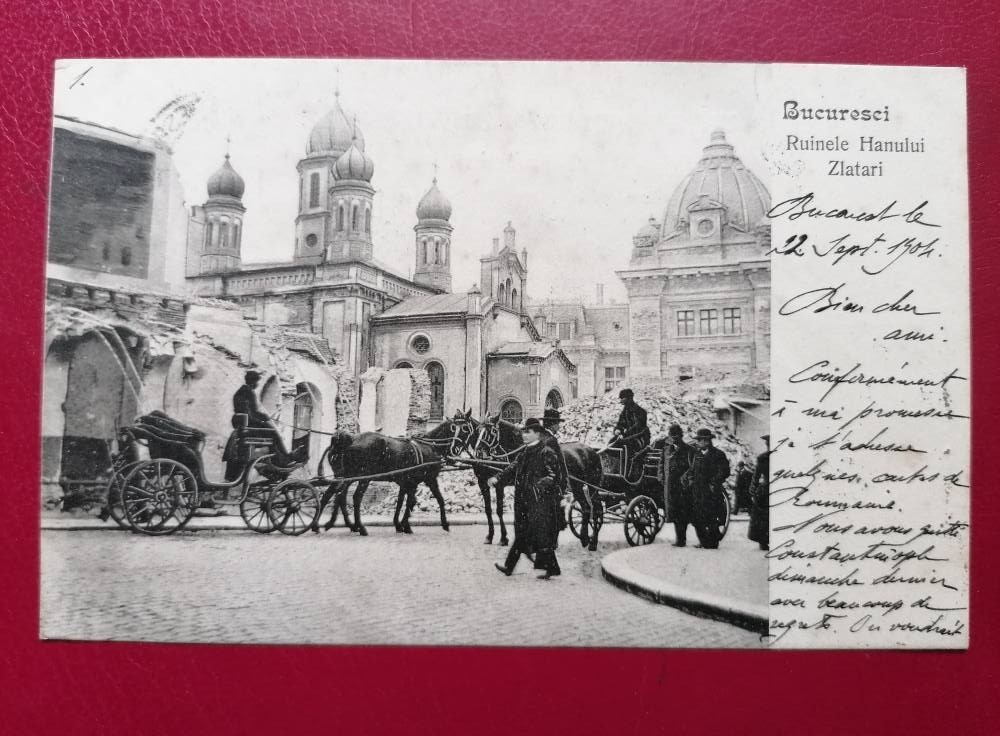 1.
Bucuresci
Ruinele Hanului
Zlatari
Bucarest le
22 Sept. 1904.
Bien cher
ami.
Conformément
à ma promesse
je t'adresse
quelques cartes de
Roumanie.
Nous avons quitté
Constantinople
dimanche dernier
avec beaucoup de
regrets. On voudrait